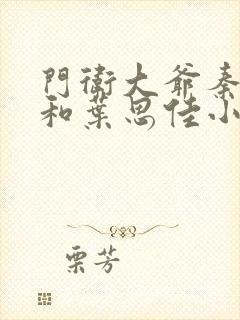 門衛大爺秦
和葉思佳小
栗芳